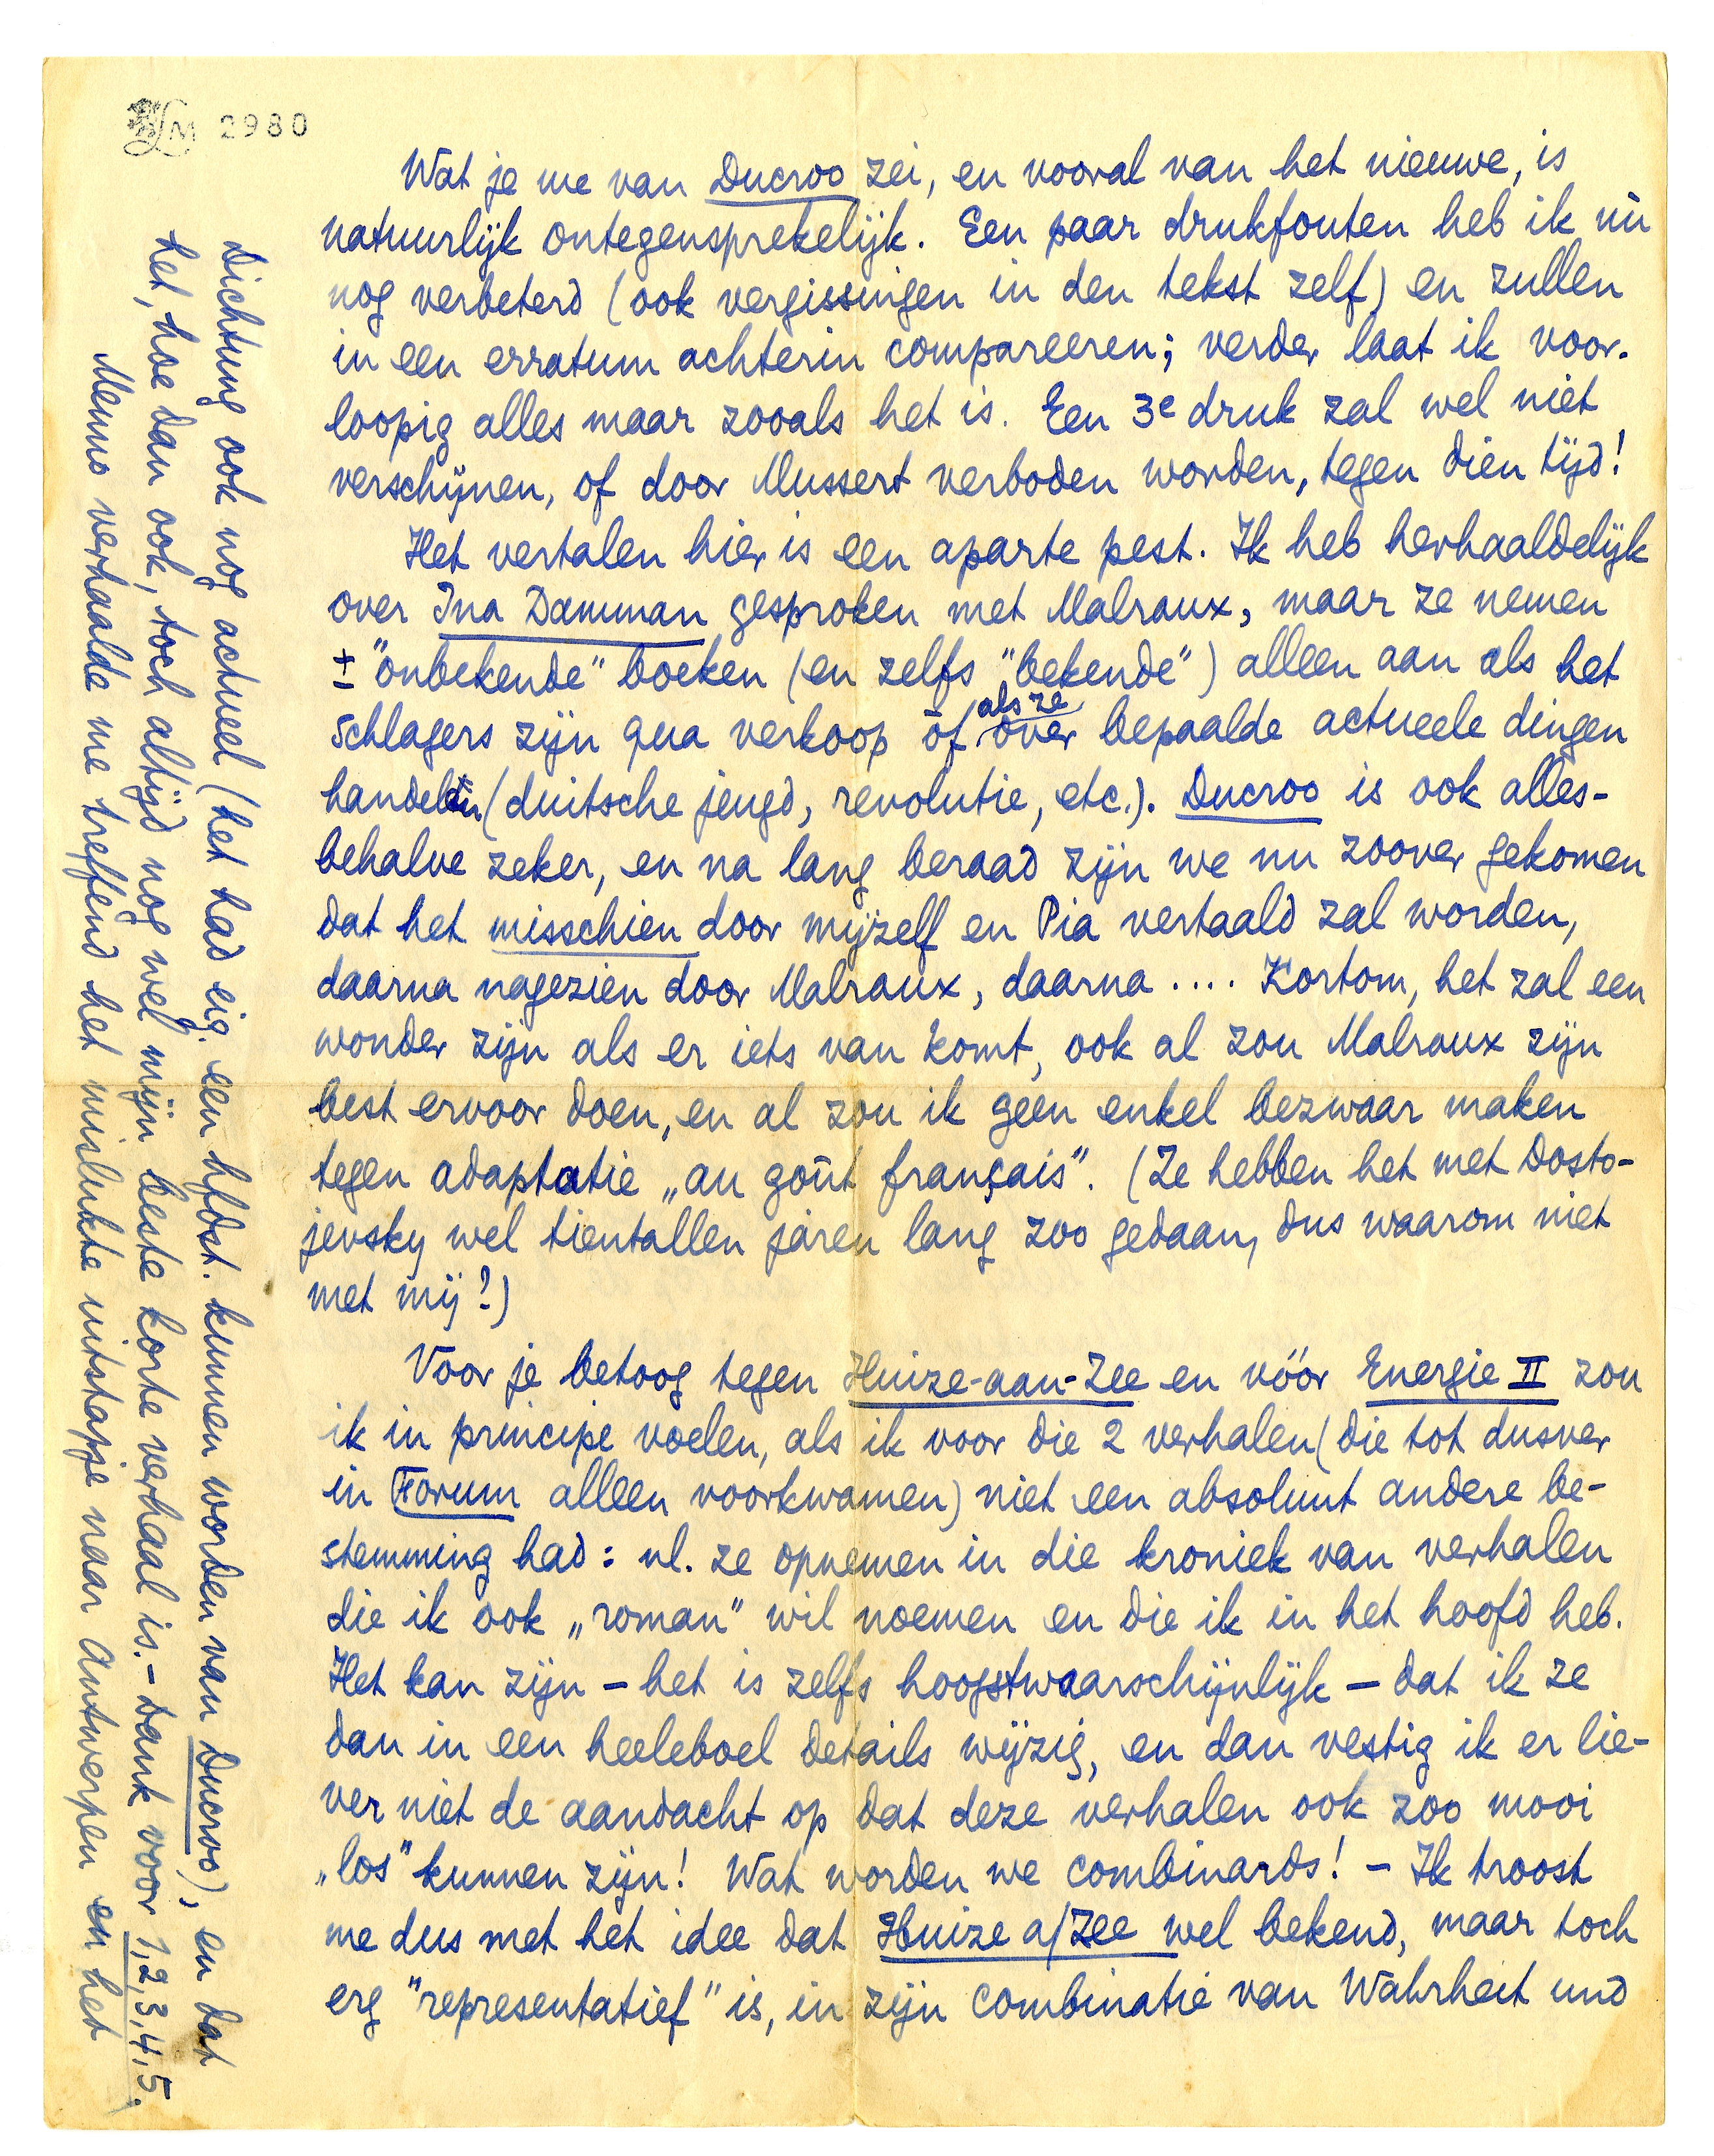 LM 2980
Wat je me van Ducroo zei, en vooral van het nieuwe, is
natuurlijk ontegensprekelijk. Een paar drukfouten heb ik nù
nog verbeterd (ook vergissingen in den tekst zelf) en zullen
in een erratum achterin compareeren; verder laat ik voor-
loopig alles maar zooals het is. Een 3e druk zal wel niet
verschijnen, of door Mussert verboden worden, tegen dien tijd!
Het vertalen hier is een aparte pest. Ik heb herhaaldelijk
over Ina Damman gesproken met Malraux, maar ze nemen
± "onbekende" boeken (en zelfs "bekende") alleen aan als het
schlagers zijn qua verkoop òf als ze over bepaalde actueele dingen
handelen (duitsche jeugd, revolutie, etc.). Ducroo is ook alles-
behalve zeker, en na lang beraad zijn we nu zoover gekomen
dat het misschien door mijzelf en Pia vertaald zal worden,
daarna nagezien door Malraux, daarna .... Kortom, het zal een
wonder zijn als er iets van komt, ook al zou Malraux zijn
best ervoor doen, en al zou ik geen enkel bezwaar maken
tegen adaptatie „au goût français". (Ze hebben het met Dosto-
jevsky wel tientallen jaren lang zoo gedaan, dus waarom niet
met mij?)
Voor je betoog tegen Huize-aan-Zee en vóór Energie II zou
ik in principe voelen, als ik voor die 2 verhalen (die tot dusver
in Forum alleen voorkwamen) niet een absoluut andere be-
stemming had: nl. ze opnemen in die kroniek van verhalen
die ik ook „roman" wil noemen en die ik in het hoofd heb.
Het kan zijn – het is zelfs hoogstwaarschijnlijk – dat ik ze
dan in een heeleboel details wijzig, en dan vestig ik er lie-
ver niet de aandacht op dat deze verhalen ook zoo mooi
„los" kunnen zijn! Wat worden we combinards! – Ik troost
me dus met het idee dat Huize a/Zee wel bekend, maar toch
erg "representatief" is, in zijn combinatie van Wahrheit und
Dichtung ook nog actueel (het had eig. een hfdst. kunnen worden van Ducroo), en dat
het, hoe dan ook, toch altijd nog wel mijn beste korte verhaal is. – Dank voor 1,2,3,4,5.
Menno verhaalde me treffend het mislukte uitstapje naar Antwerpen en het